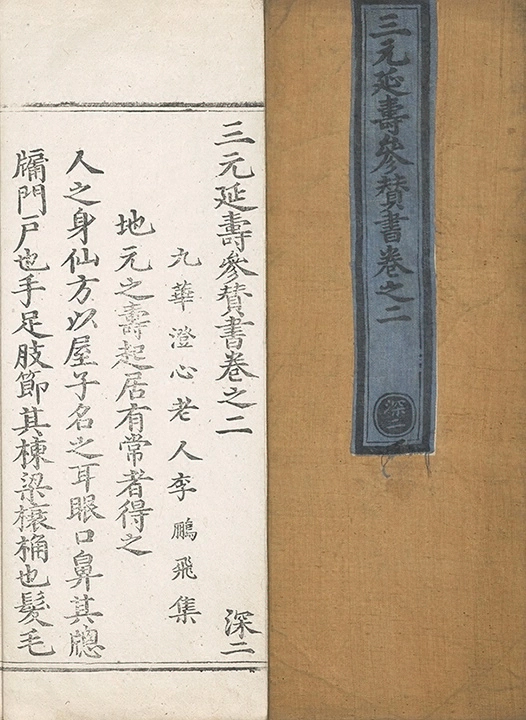 三元延壽參賛書卷之二
深二
三元延壽參賛書卷之二 深二
九華澄心老人李鵬飛集
地元之壽起居有常者得之
人之身仙方以屋子名之耳眼口鼻其牕
牖門戸也手足肢節其棟梁榱桷也髪毛